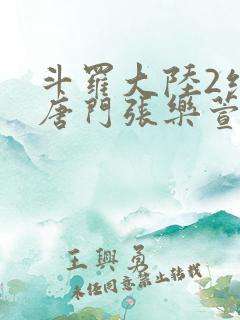 斗羅大陸2
唐門張樂萱
王興勇
未經同意禁止轉載